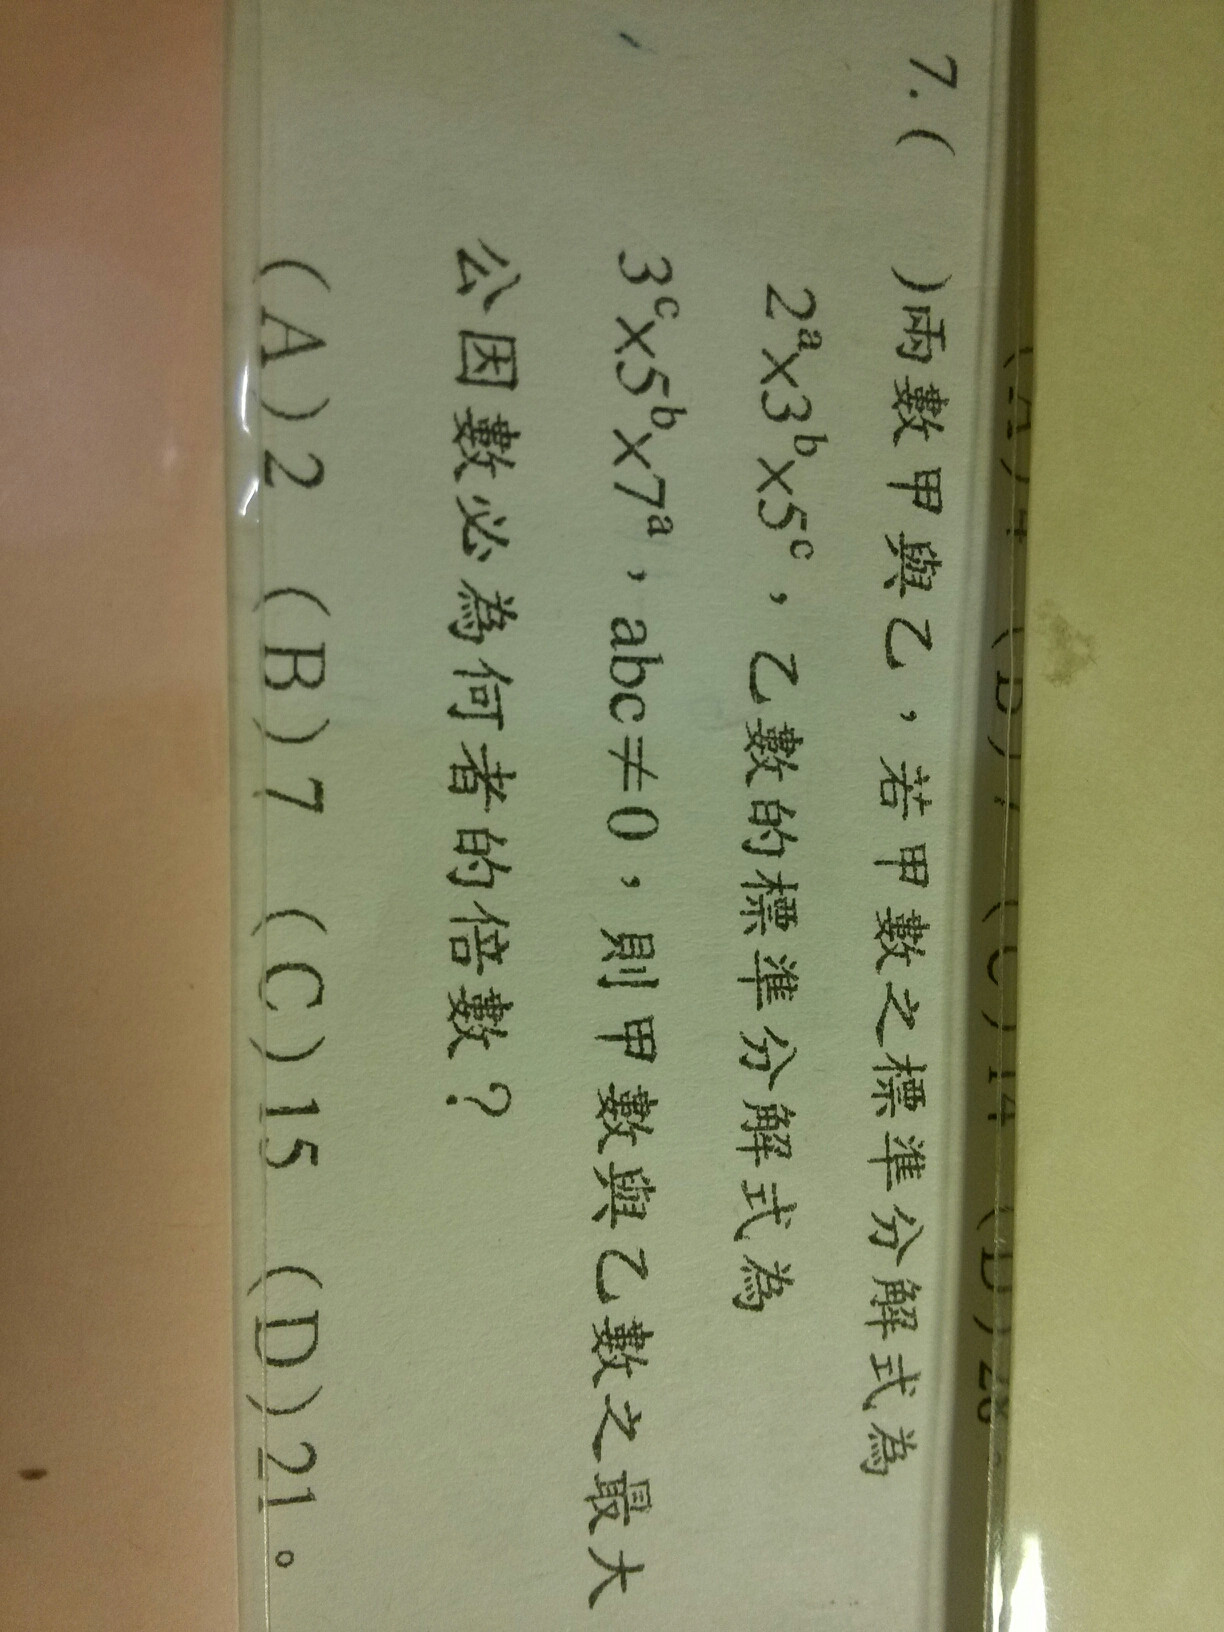 7.( )兩數甲與乙，若甲數之標準分解式為
2ᵃ×3ᵇ×5ᶜ，乙數的標準分解式為
3ᶜ×5ᵇ×7ᵃ，abc≠0，則甲數與乙數之最大
公因數必為何者的倍數？
(A)2 (B)7 (C)15 (D)21。